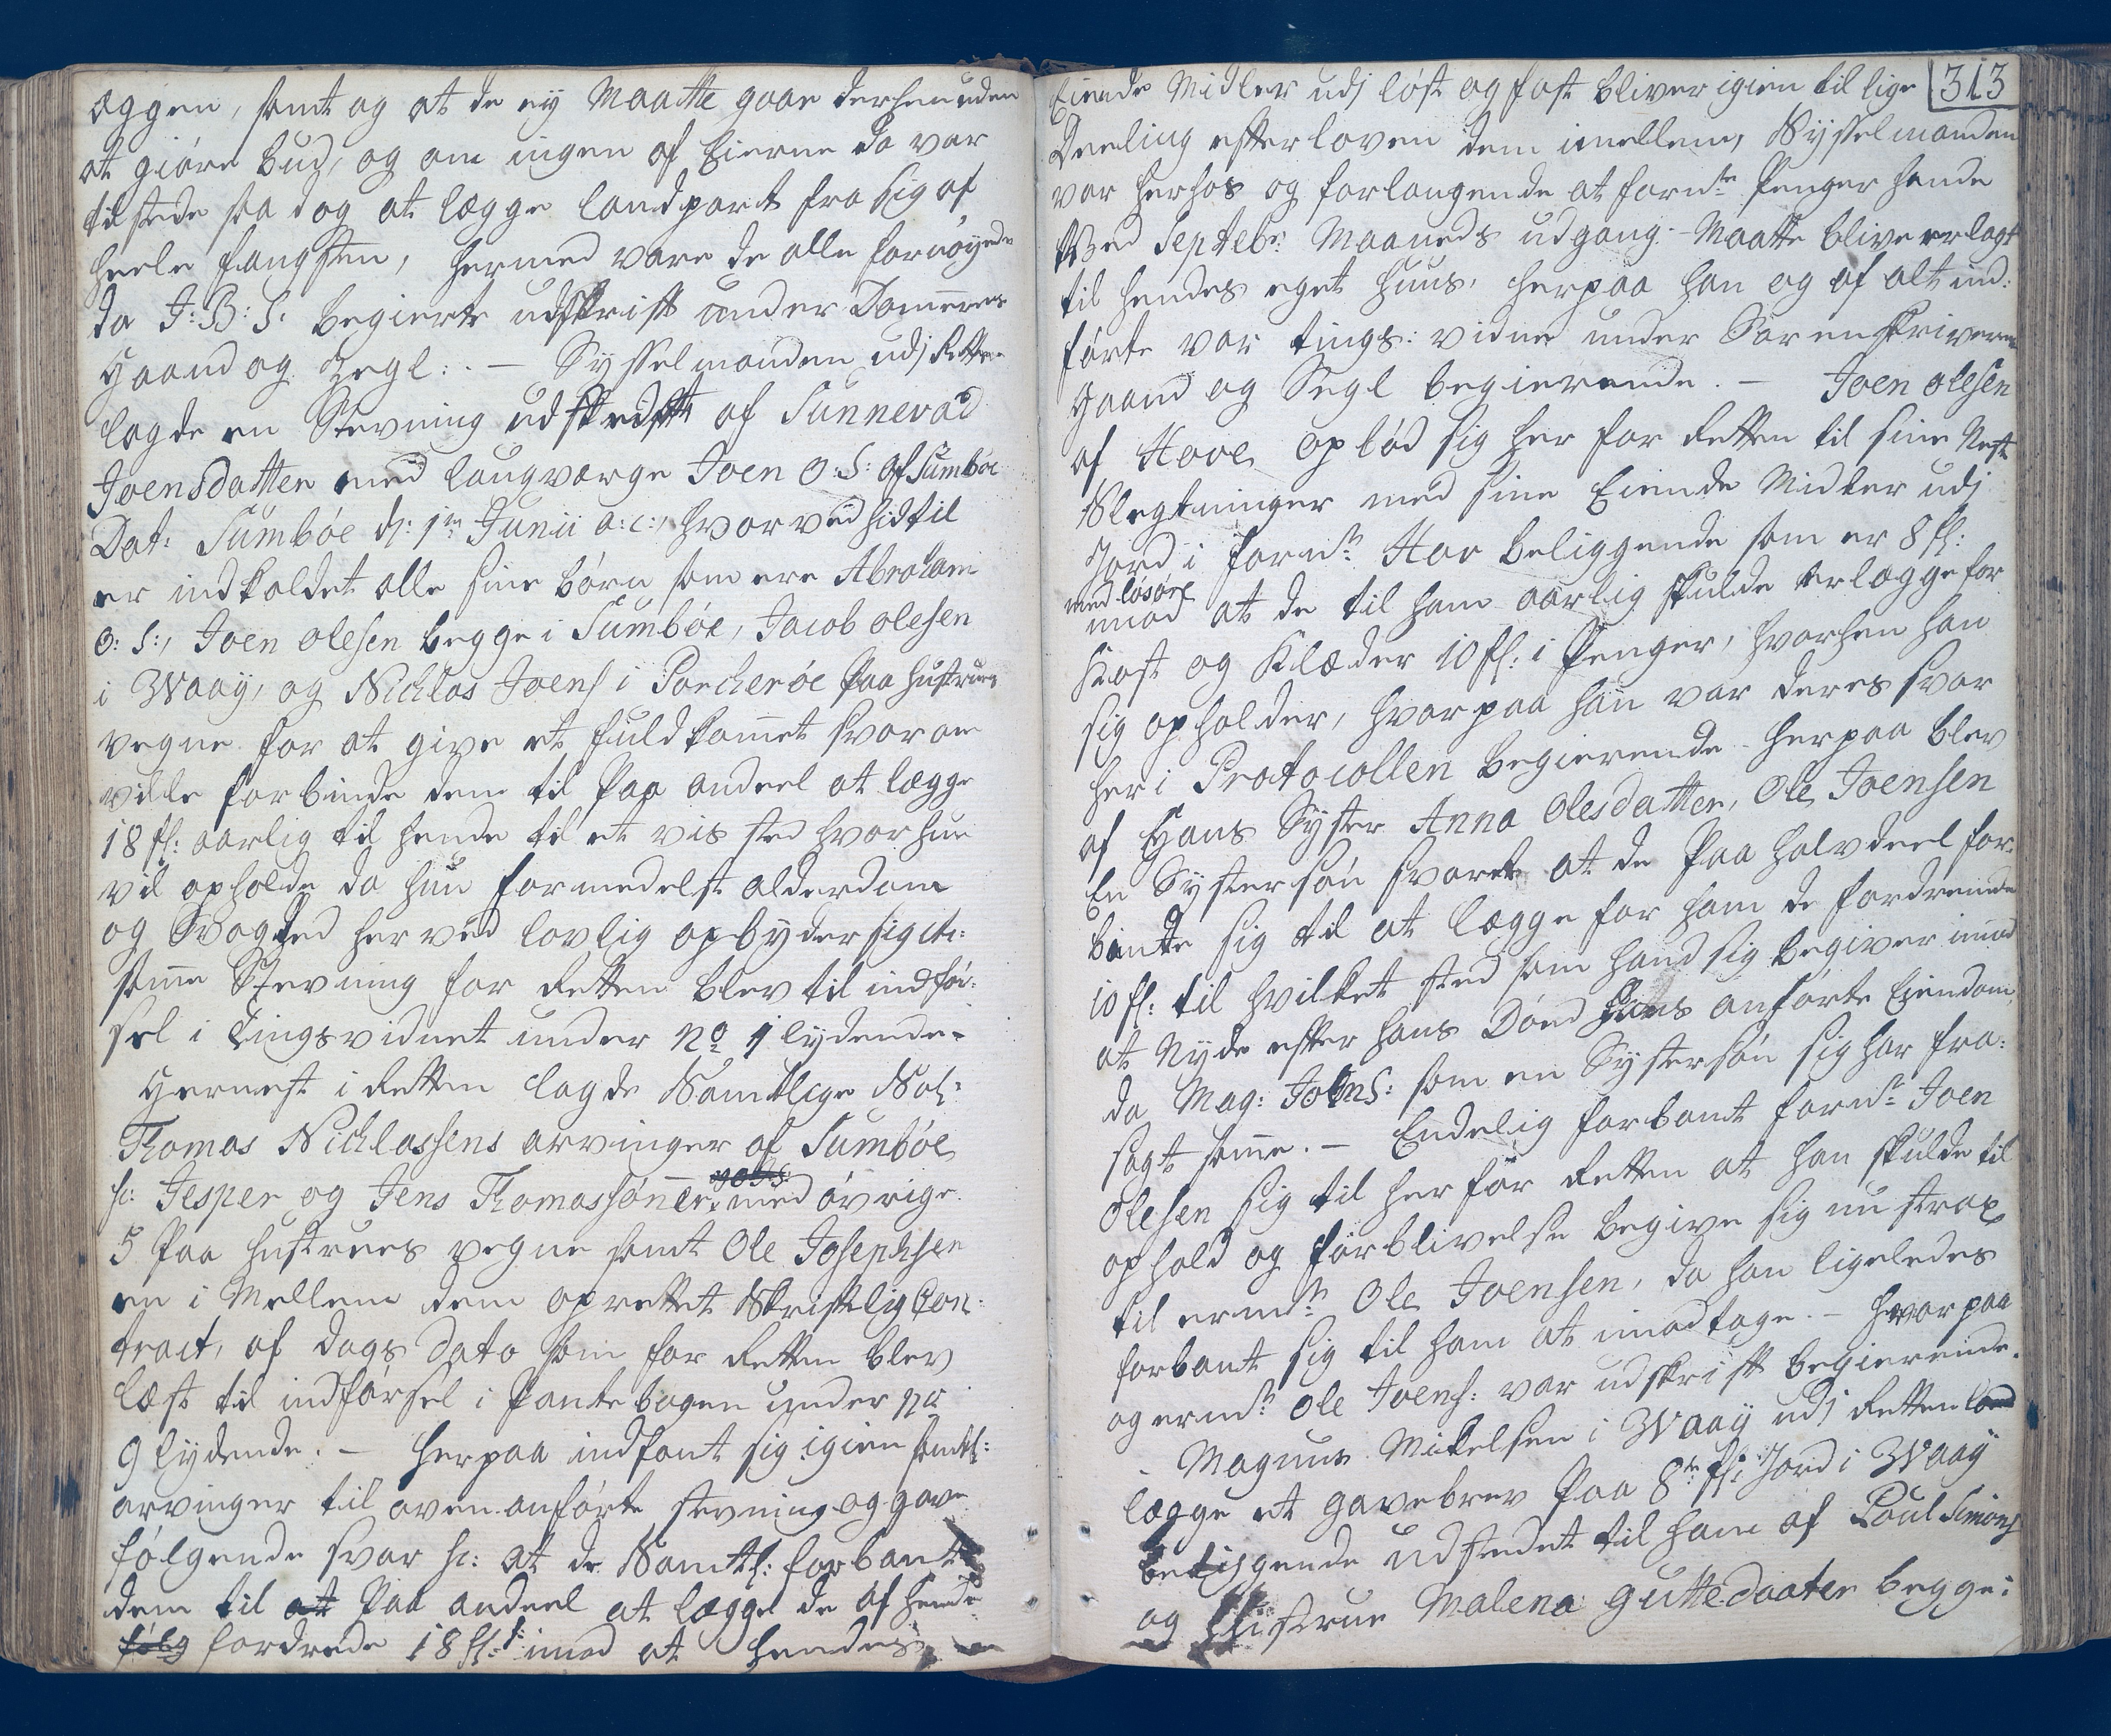 æggen, samt og at de ey Maatte gaae derhen uden
at giöre bud, og om ingen af Eierne da var
tilstede saa dog at lægge landpart fra sig af
heele fangsten, hermed vare de alle fornöyede
da J: B: S: begierte udskrift under Dommeren
Haand og Zegl: . – Sysselmanden udj Retten
lagde en Stevning udstedt af Sunneva
Joensdatter med laugværge Joen O: S: af Sumböe
Dat: Sumböe d: 1te Junii a: c:, hvorved hidtil
er indkaldet alle sine börn som ere Abraham
O: S:, Joen Olesen begge i Sumböe, Jacob Olesen
i Waaÿ, og Nicklas Joens i Porcheröe paa hustrues
vegne for at give et fuldkommet svar om
ville forbinde dem til Paa andeel at lægge
18 fl: aarlig til hende til et vis sted hvor hun
vil opholde da hun formedelst alderdom
og Svaghed herved lovlig opbyder sig etc:
samme Stevning for Retten blev til indför:
sel i Tingsvidnet under No 1 lydende.
Hernest i Retten lagde Samtlige Sal:
Thomas Nicklassens arvinger af Sumböe
sc: Jesper og Jens Thomassönner med övrige
5 Paa hustrues vegne samt Ole Josephsen
en i Mellem dem oprettet Skriftlig Con:
tract, af dags Dato som for Retten blev
læst til indförsel i Pantebogen under No
9 lydende. – Herpaa indfant sig igien samtl:
arvinger til oven anförte stevning og gave
fölgende svar sc: at de Samtl: forbant
dem til at Paa andeel at lægge de af hende
fölg fordrede 18 fl: imod at hendes
Eiende Midler udj löst og fast bliver igien til lige 313
Deeling efter loven dem imellem, Sysselmanden
var herhos og forlangende at fornte Penger hende
Ved Septebr: Maaneds udgang Maatte blive erlagt
til hendes eget huus, herpaa han og af alt ind:
förte var tings: vidne under Sorenskriverens
Haand og Segl begierende. – Joen Olesen
af Hove opböd sig her for Retten til sine Nest
Slegtninger med sine Eiende Midler udj
Jord i fornte Hov beliggende som er 8 fl:
med lösöre
imod at de til ham aarlig skulde erlægge for
Kost og Klæder 10 fl: i Penger, hvorhen han
sig opholder, hvorpaa han var deres svar
her i Protocollen begierende. Herpaa blev
af Hans Syster Anna Olesdatter, Ole Joensen
En Systersön svaret at de Paa halvdeel for:
binte sig til at lægge for ham de fordrende
10 fl: til hvilket sted som hand sig begiver imod
at Nyde efter hans Död hans anförte Eiendom
da Mag: JohnS: som en Systersön sig har fra:
sagt samme. – Endelig forbant fornte Joen
Olesen sig til her for Retten at han skulde til
ophold og forblivelse begive sig nu strax
til ermte Ole Joensen, da han ligeledes
forbant sig til ham at imodtage. – Hvorpaa
og ermte Ole Joens: var udskrift begierende.
Magnus Mikelsen i Waaÿ udj Retten lood
lægge et gavebrev Paa 8te fl: Jord i Waaÿ
beliggende udstedet til ham af Poul Simons
og Hustrue Malena Guttesdaater begge i